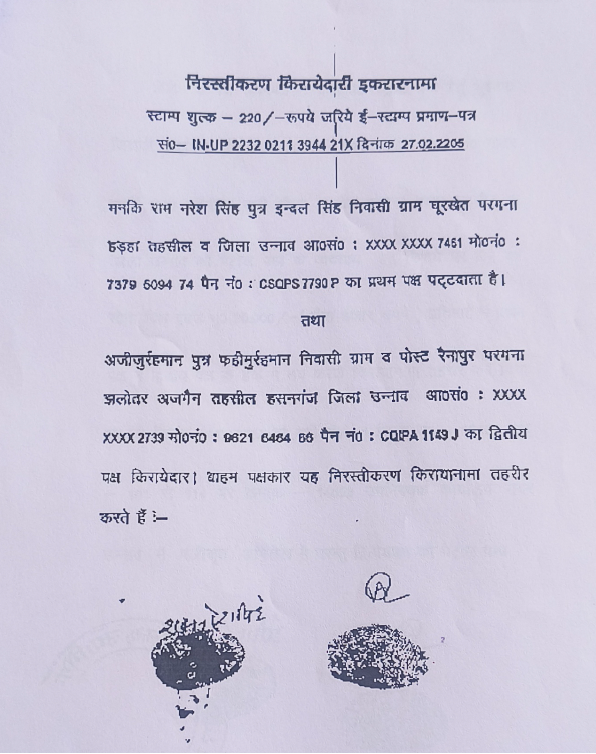 निरस्तीकरण किरायेदारी इकरारनामा
स्टाम्प शुल्क – 220/–रूपये जरिये ई–स्टाम्प प्रमाण–पत्र
सं0– IN-UP 2232 0211 3944 21X दिनाक 27.02.2205
मनकि राम नरेश सिंह पुत्र इन्दल सिंह निवासी ग्राम घूरखेत परगना
हड़हा तहसील व जिला उन्नाव आ0सं0 : XXXX XXXX 7461 मो0नं0 :
7379 5094 74 पैन नं0 : CSQPS 7790 P का प्रथम पक्ष पट्टदाता है।
तथा
अजीजुर्रहमान पुत्र फहीमुर्रहमान निवासी ग्राम व पोस्ट रैनापुर परगना
झलोतर अजगैन तहसील हसनगंज जिला उन्नाव आ0सं0 : XXXX
XXXX 2739 मो0नं0 : 9621 6464 66 पैन नं0 : CQIPA 1149 J का द्वितीय
पक्ष किरायेदार। बाहम पक्षकार यह निरस्तीकरण किरायानामा तहरीर
करते हैं :–